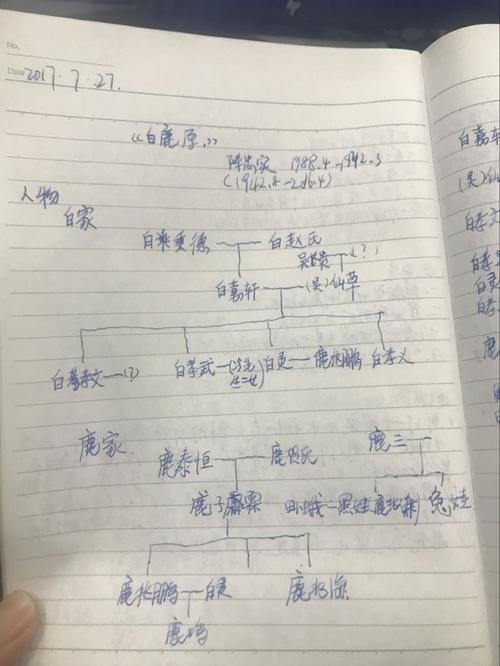 No.
Date 2017.7.27.
《白鹿原》
陈忠实 1988.4-1992.3
(1942.8-2016.4)
人物
白家
白秉德 白赵氏
吴长贵 (?)
白嘉轩 (吴)仙草
白孝文-(?) 白孝武-(冷先生二女) 白灵-鹿兆鹏 白孝义
鹿家
鹿泰恒 鹿贺氏 鹿三
鹿子霖 田小娥-黑娃 兔娃
鹿兆鹏 白灵 鹿兆海
鹿鸣
白嘉轩
(吴)仙
白孝文
白孝
白灵
白孝
鹿